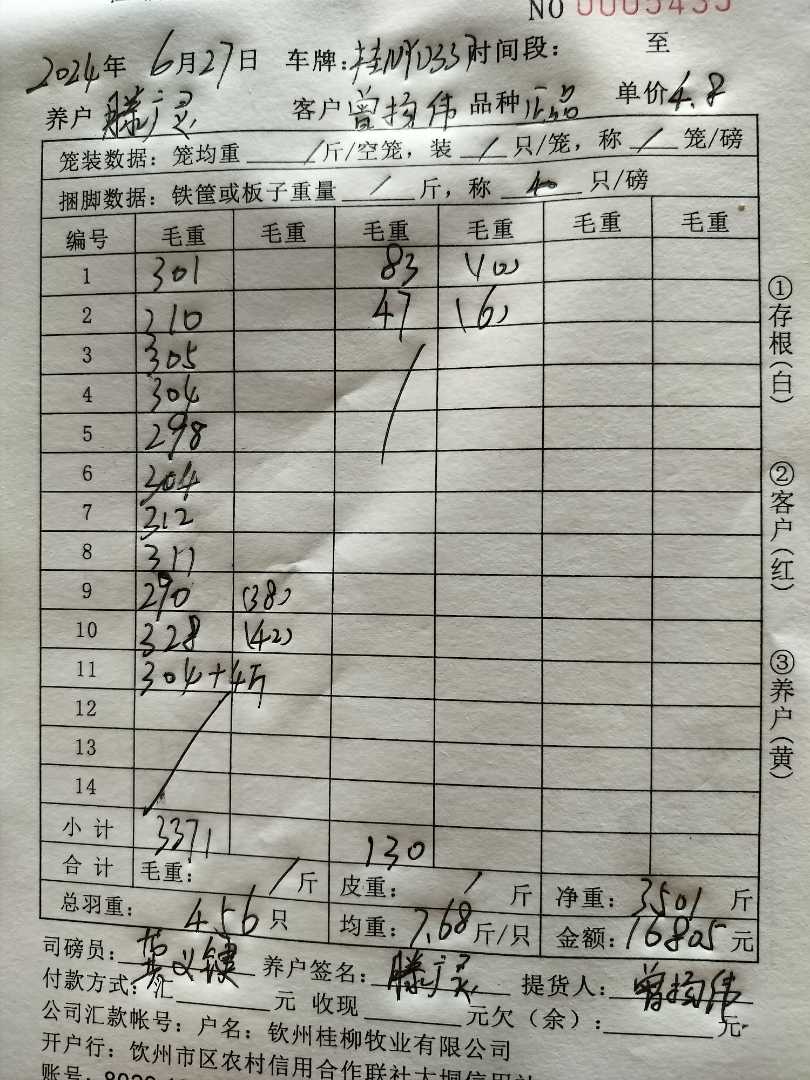 NO 0005435
2024年 6月27日 车牌: 时间段: 至
养户 滕广灵 客户 曾扬伟 品种 正品 单价 4.8
笼装数据: 笼均重 / 斤/空笼, 装 / 只/笼, 称 / 笼/磅
捆脚数据: 铁筐或板子重量 / 斤, 称 40 只/磅
编号 毛重 毛重 毛重 毛重 毛重 毛重
1 301 83 (10)
2 310 47 (6)
3 305
4 304
5 298
6 304
7 312
8 311
9 290 (38)
10 328 (42)
11 304+4斤
12
13
14
小 计 3371 130
合 计 毛重: / 斤 皮重: / 斤 净重: 3501 斤
总羽重: 456 只 均重: 7.68 斤/只 金额: 16805 元
司磅员: 黄义键 养户签名: 滕广灵 提货人: 曾扬伟
付款方式: 汇 元 收现 元欠(余): 元
公司汇款帐号: 户名: 钦州桂柳牧业有限公司
开户行: 钦州市区农村信用合作联社大垌信用社
账号:
①存根(白) ②客户(红) ③养户(黄)